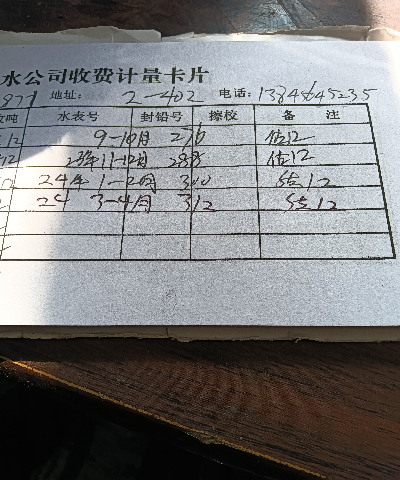 水公司收费计量卡片
877 地址: 2-402 电话: 13845645235
吨 水表号 封铅号 擦校 备 注
12 9-10月 276 估12
12 23年11-12月 288 估12
24年 1-2月 300 估12
24 3-4月 312 估12